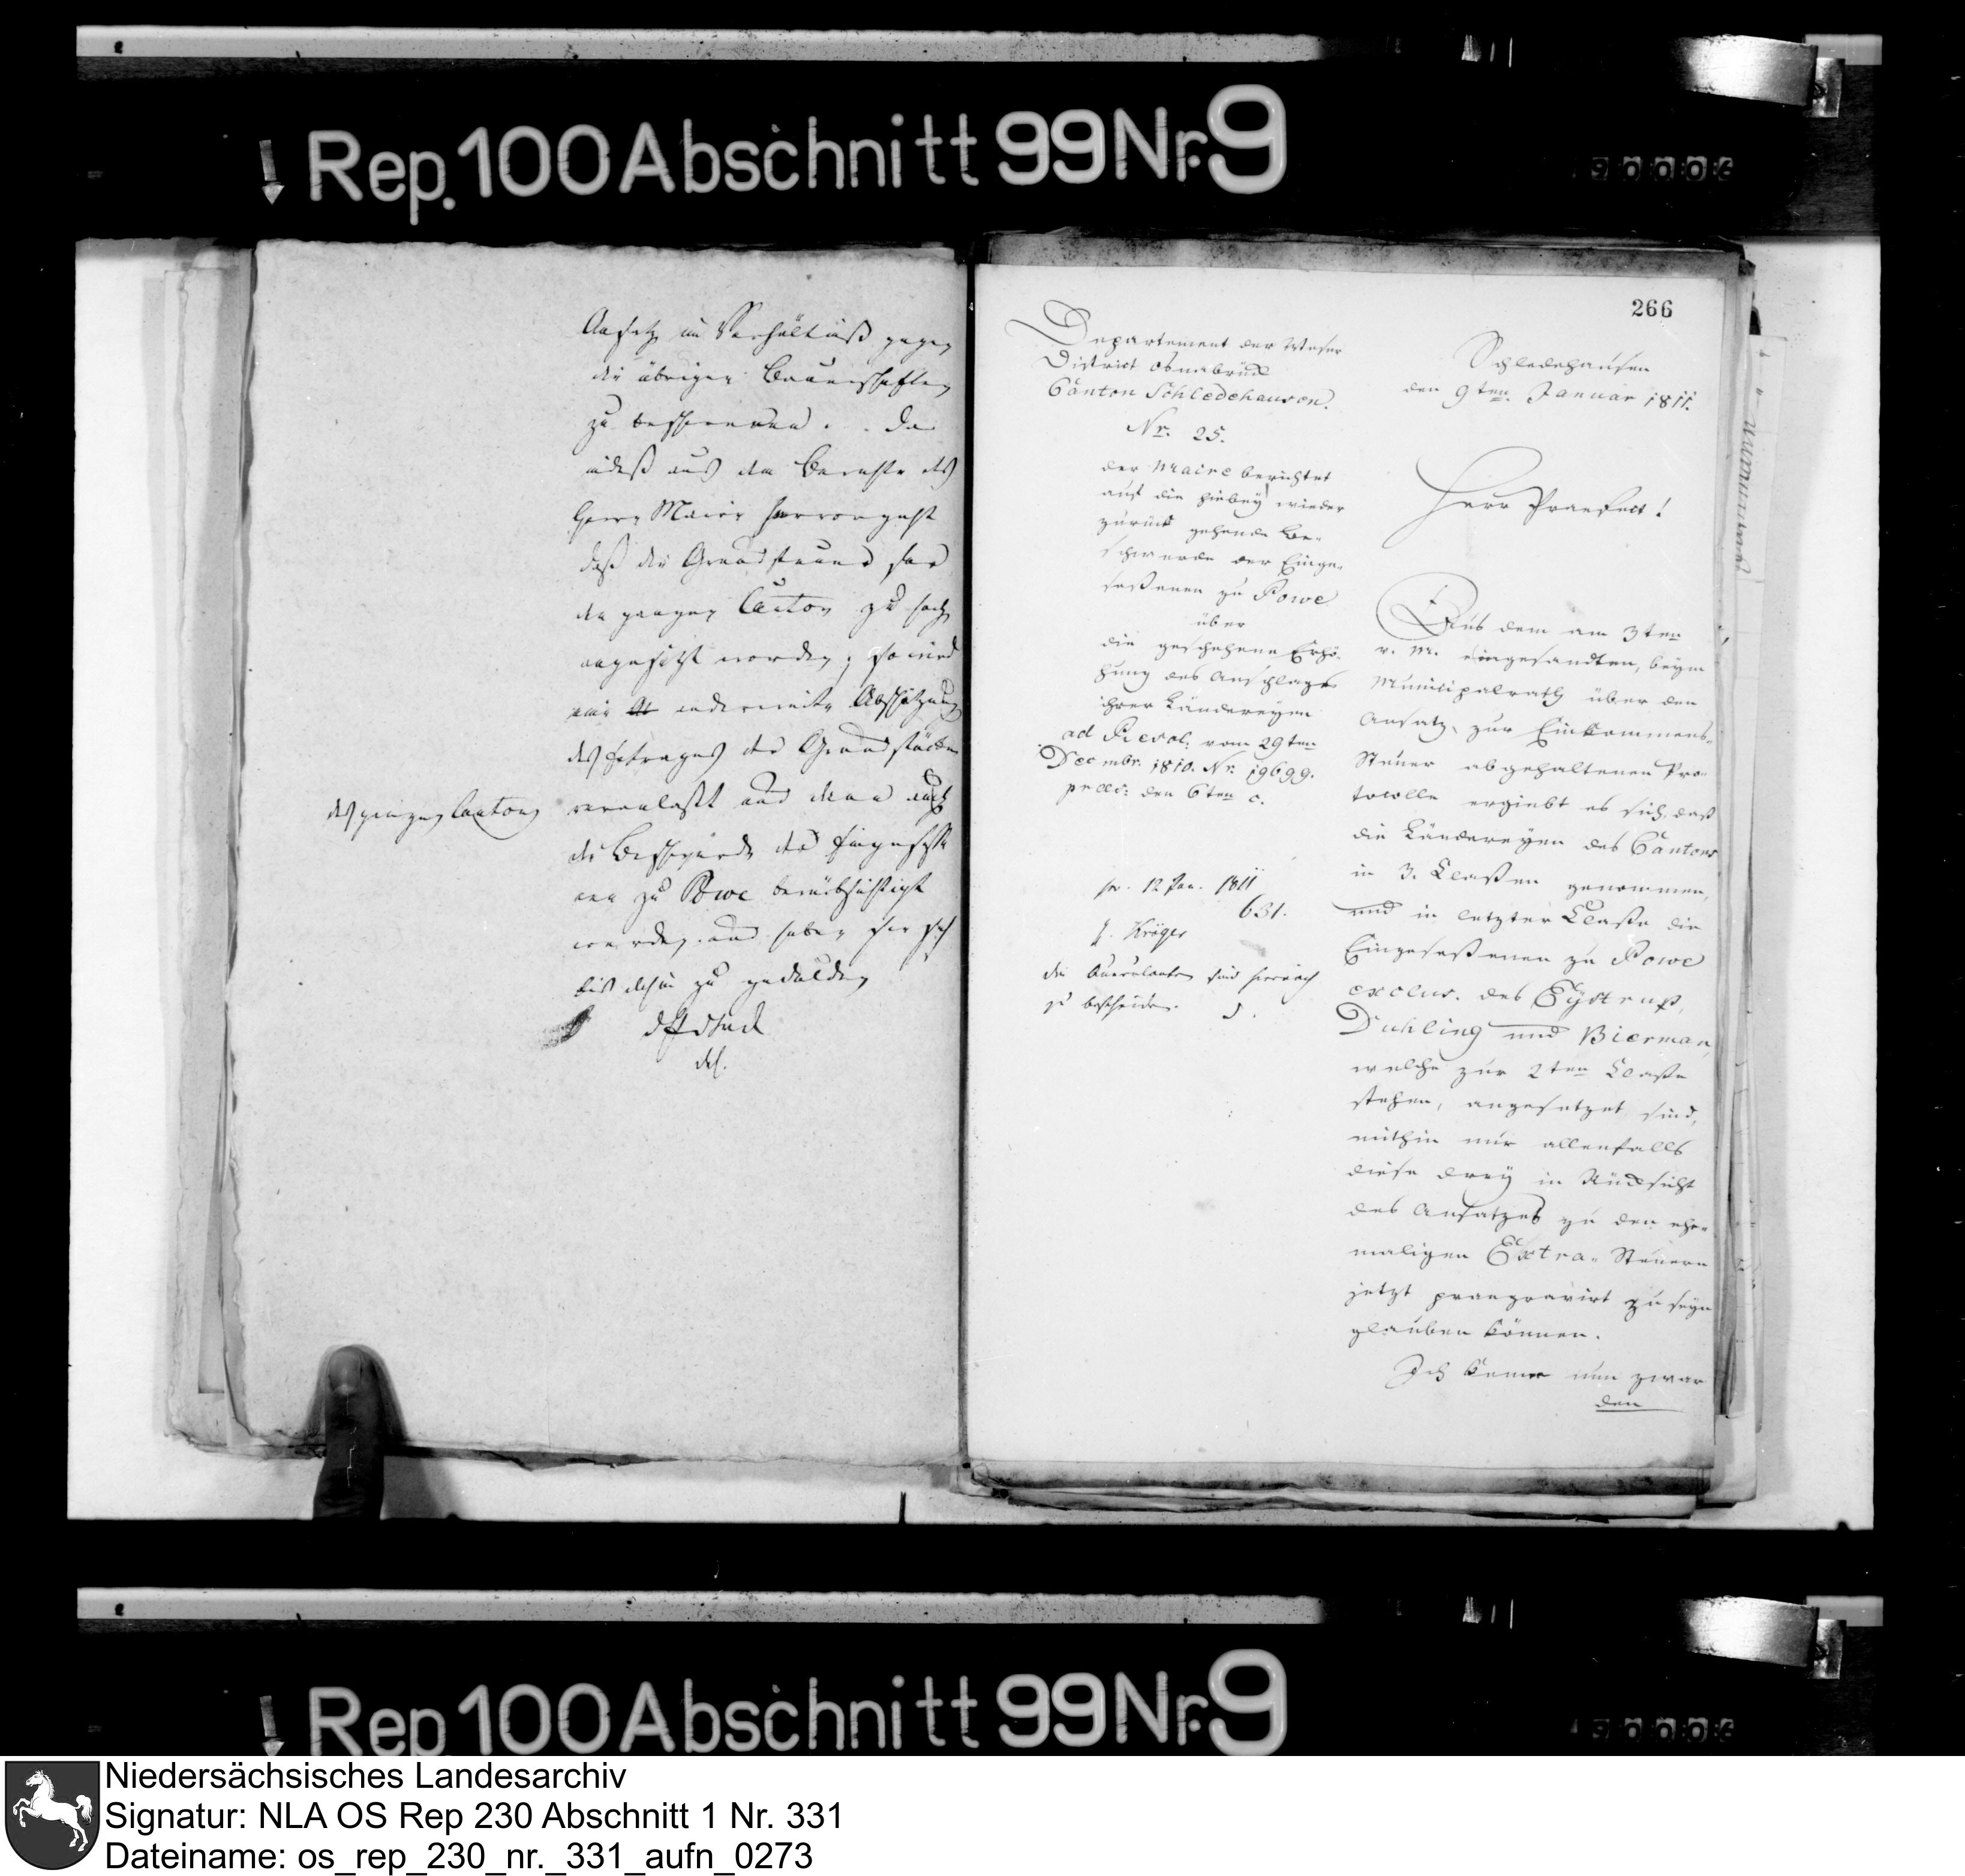 Rep. 100 Abschnitt 99 Nr. 9
Ansatz im Verhältniß gegen
die übrigen Bauerschaften
zu beschweren. Da
indeß aus dem Berichte des
Herrn Maire hervorgeht
daß die Grundsteuer für
den ganzen Canton zu hoch
angesetzt worden; so wird
eine anderweite Abschätzung
des Ertrages der Grundstücke
des ganzen Cantons
veranlaßt und dann auch
die Beschwerde der Eingesesse
nen zu Powe berücksichtigt
werden und haben sie sich
bis dahin zu gedulden
266
Departement der Weser
District Osnabrück
Canton Schledehausen.
Nr. 25.
der Maire berichtet
auf die hiebey wieder
zurück gehende Be-
schwerde der Einge-
seßenen zu Powe
über
die geschehene Erhö-
hung des Anschlages
ihrer Ländereyen
ad Resol: vom 29ten
Decembr. 1810. Nr. 19699.
den 6ten c.
pr. 12 Jan. 1811
631.
Kröger
die Querulanten sind hiernach
zu bescheiden.
Schledehausen
den 9ten Januar 1811.
Herr Praefect!
Aus dem am 3ten
v. M. eingesandten, beym
Municipalrath über den
Ansatz zur Einkommens-
Steuer abgehaltenen Pro-
tocolle ergiebt es sich, daß
die Ländereyen des Cantons
in 3. Claßen genommen,
und in letzter Claße die
Eingeseßenen zu Powe
exclus. des Eystrup,
Duhling und Bierman,
welche zur 2ten Claße
stehen, angesetzet sind,
mithin nur allenfalls
diese drey in Rücksicht
des Ansatzes zu den ehe-
maligen Extra-Steuern
jetzt praegravirt zu seyn
glauben können.
Ich kenne nun zwar
den
Rep. 100 Abschnitt 99 Nr. 9
Niedersächsisches Landesarchiv
Signatur: NLA OS Rep 230 Abschnitt 1 Nr. 331
Dateiname: os_rep_230_nr._331_aufn_0273